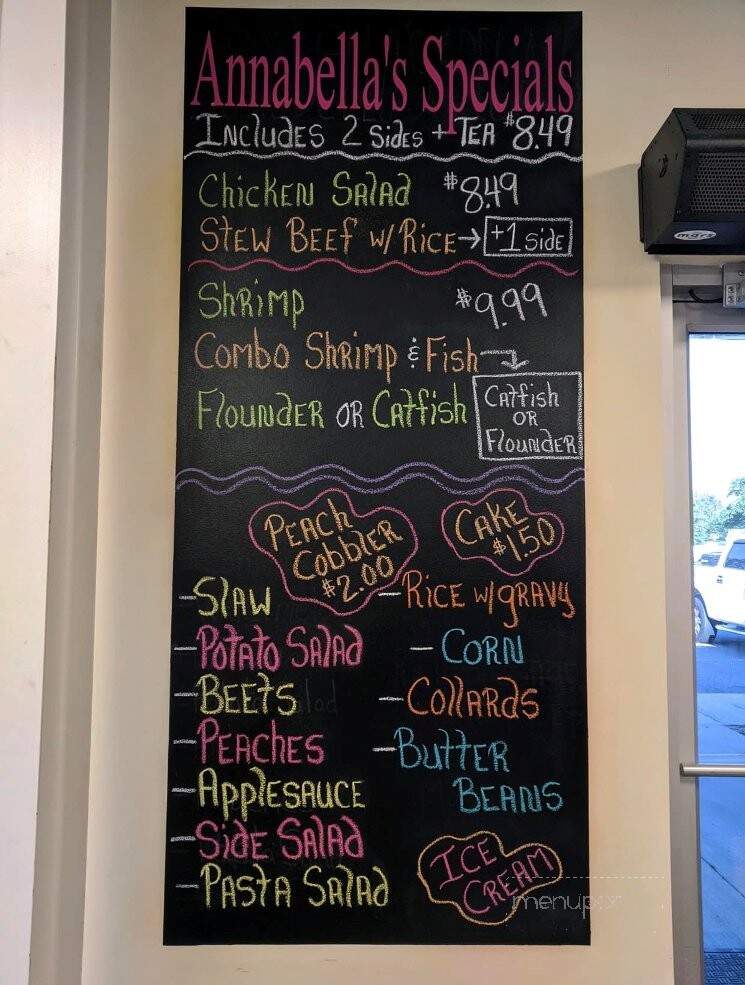 Annabella's Specials
Includes 2 sides + Tea $8.49
Chicken Salad $8.49
Stew Beef w/ Rice → +1 side
Shrimp $9.99
Combo Shrimp & Fish →
Flounder or Catfish
Catfish
or
Flounder
Peach
Cobbler
$2.00
Cake
$1.50
- Slaw
- Potato Salad
- Beets
- Peaches
- Applesauce
- Side Salad
- Pasta Salad
- Rice w/ gravy
- Corn
- Collards
- Butter
Beans
Ice
Cream
mars
menupix